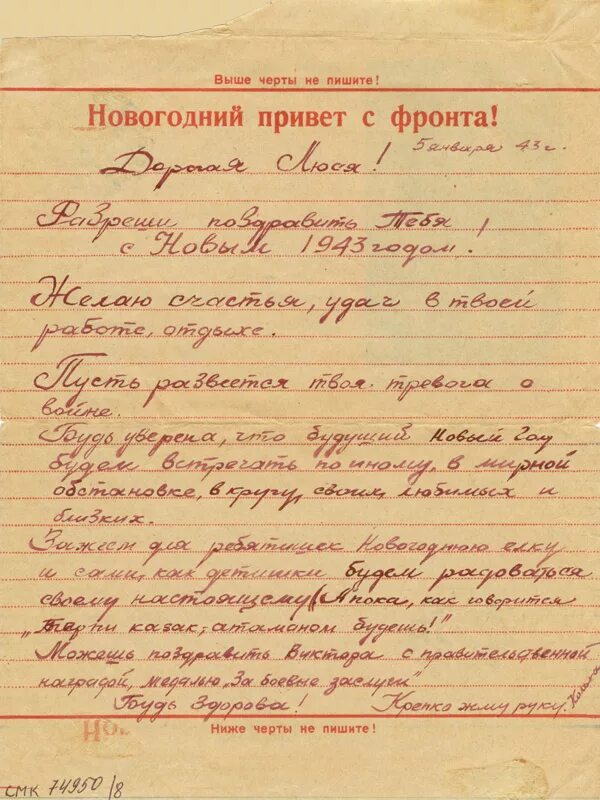 Выше черты не пишите!
Новогодний привет с фронта!
5 января 43 г.
Дорогая Люся!
Разреши поздравить Тебя
с Новым 1943 годом!
Желаю счастья, удач в твоей
работе, отдыхе.
Пусть развеется твоя тревога о
войне.
Будь уверена, что будущий Новый Год
будем встречать по иному, в мирной
обстановке, в кругу, своих, любимых и
близких.
Зажжем для ребятишек Новогоднюю елку
и сами, как детишки будем радоваться
своему настоящему (А пока, как говорится
„Терпи казак, атаманом будешь!"
Можешь поздравить Виктора с правительственной
наградой, медалью „За боевые заслуги"
Будь Здорова! Крепко жму руку.
Но
Ниже черты не пишите!
СМК 74950/8